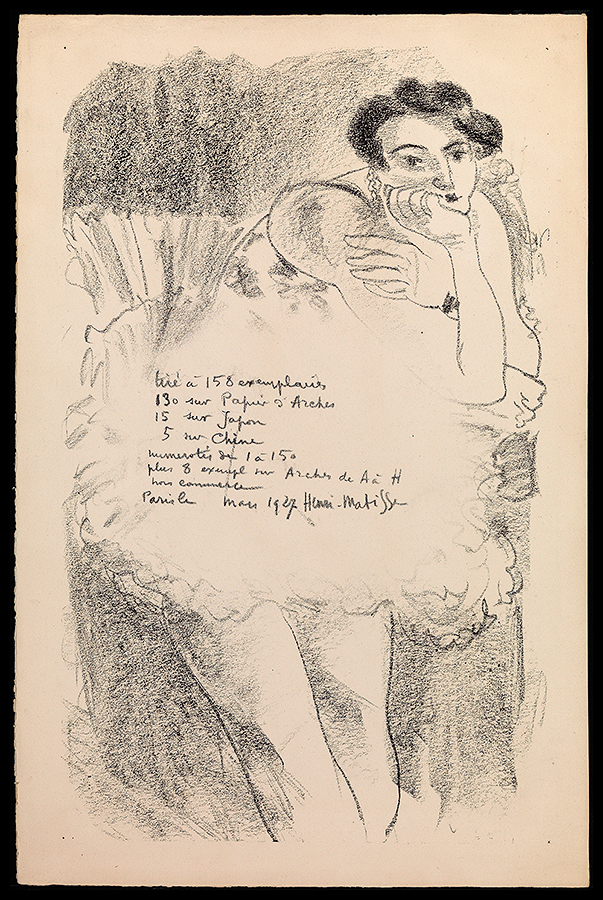 tiré à 158 exemplaires
130 sur Papier d'Arches
15 sur Japon
5 sur Chine
numerotés de 1 à 150
plus 8 exempl sur Arches de A à H
hors commerce
Paris le mars 1927 Henri-Matisse